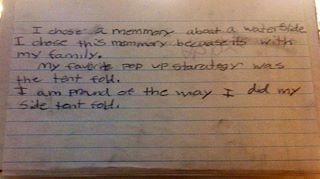 I chose a memmory about a waterslide
I chose this mommory because its with
my family.
My favorite pop up starategy was
the tent fold.
I am proud of the way I did my
side tent fold.